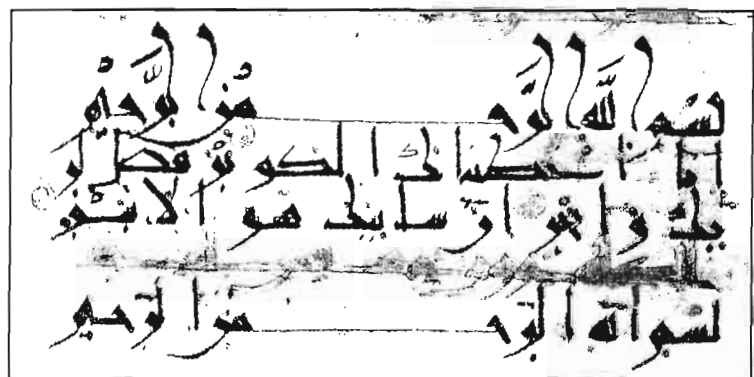 بسم الله الرحمن الرحيم
انا اعطينك الكوثر فصل لر
بك وانحر ان شانيك هو الابتر
بسم الله الرحمن الرحيم